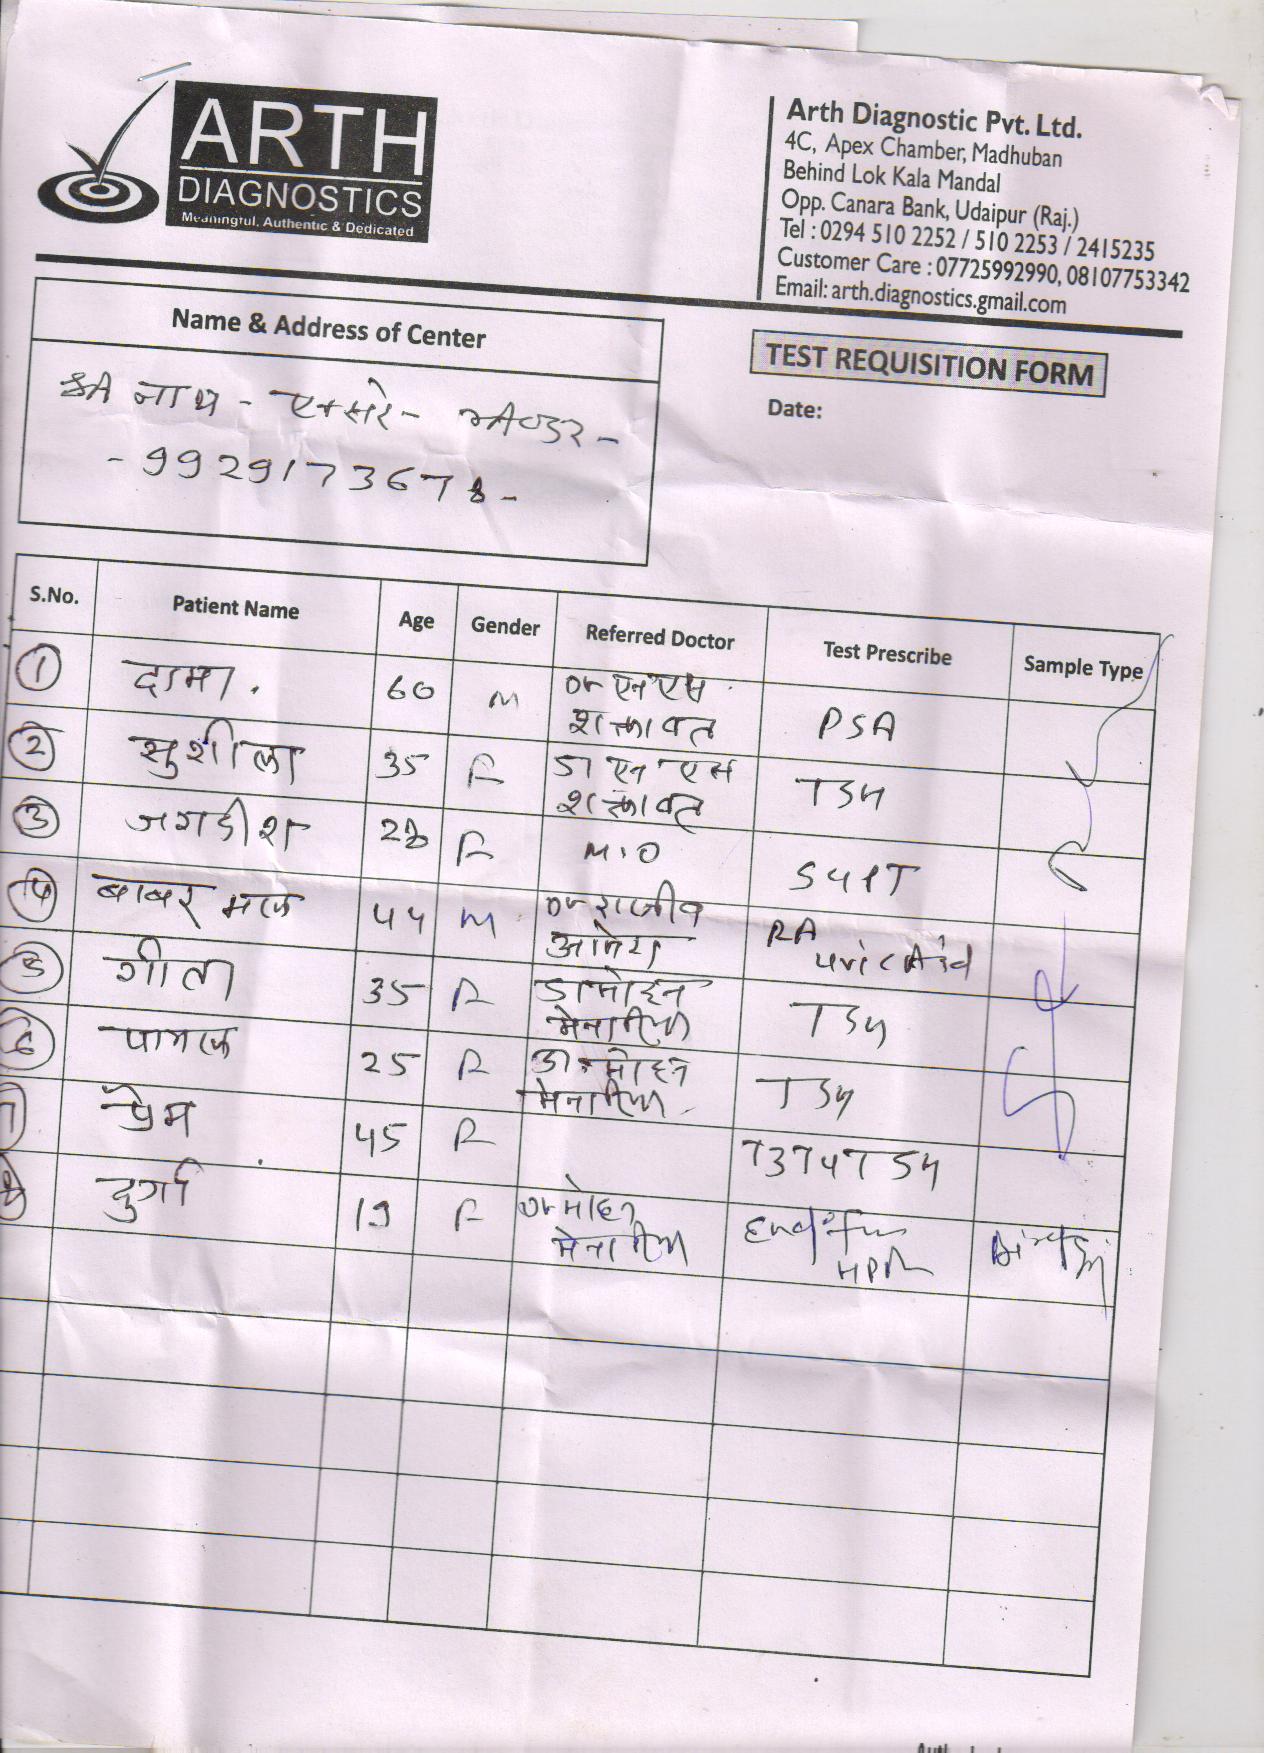 ARTH
DIAGNOSTICS
Meaningful, Authentic & Dedicated
Arth Diagnostic Pvt. Ltd.
4C, Apex Chamber, Madhuban
Behind Lok Kala Mandal
Opp. Canara Bank, Udaipur (Raj.)
Tel : 0294 510 2252 / 510 2253 / 2415235
Customer Care : 07725992990, 08107753342
Email: arth.diagnostics.gmail.com
Name & Address of Center
TEST REQUISITION FORM
Date:
नाथ - एक्सरे -
- 9929173678 -
S.No. Patient Name Age Gender Referred Doctor Test Prescribe Sample Type
1 दामा. 60 M Dr एन एस शक्तावत PSA
2 सुशीला 35 F डा एन एस शक्तावत TSH
3 जगदीश 28 F M.O SGPT
4 बाबर मल 44 M Dr राजीव RA Uric Acid
5 गीता 35 F डा मोहन मेनारिया TSH
6 25 F डा. मोहन मेनारिया TSH
7 प्रेम 45 F T3T4TSH
8 दुर्गा 19 F Dr मोहन मेनारिया HPR